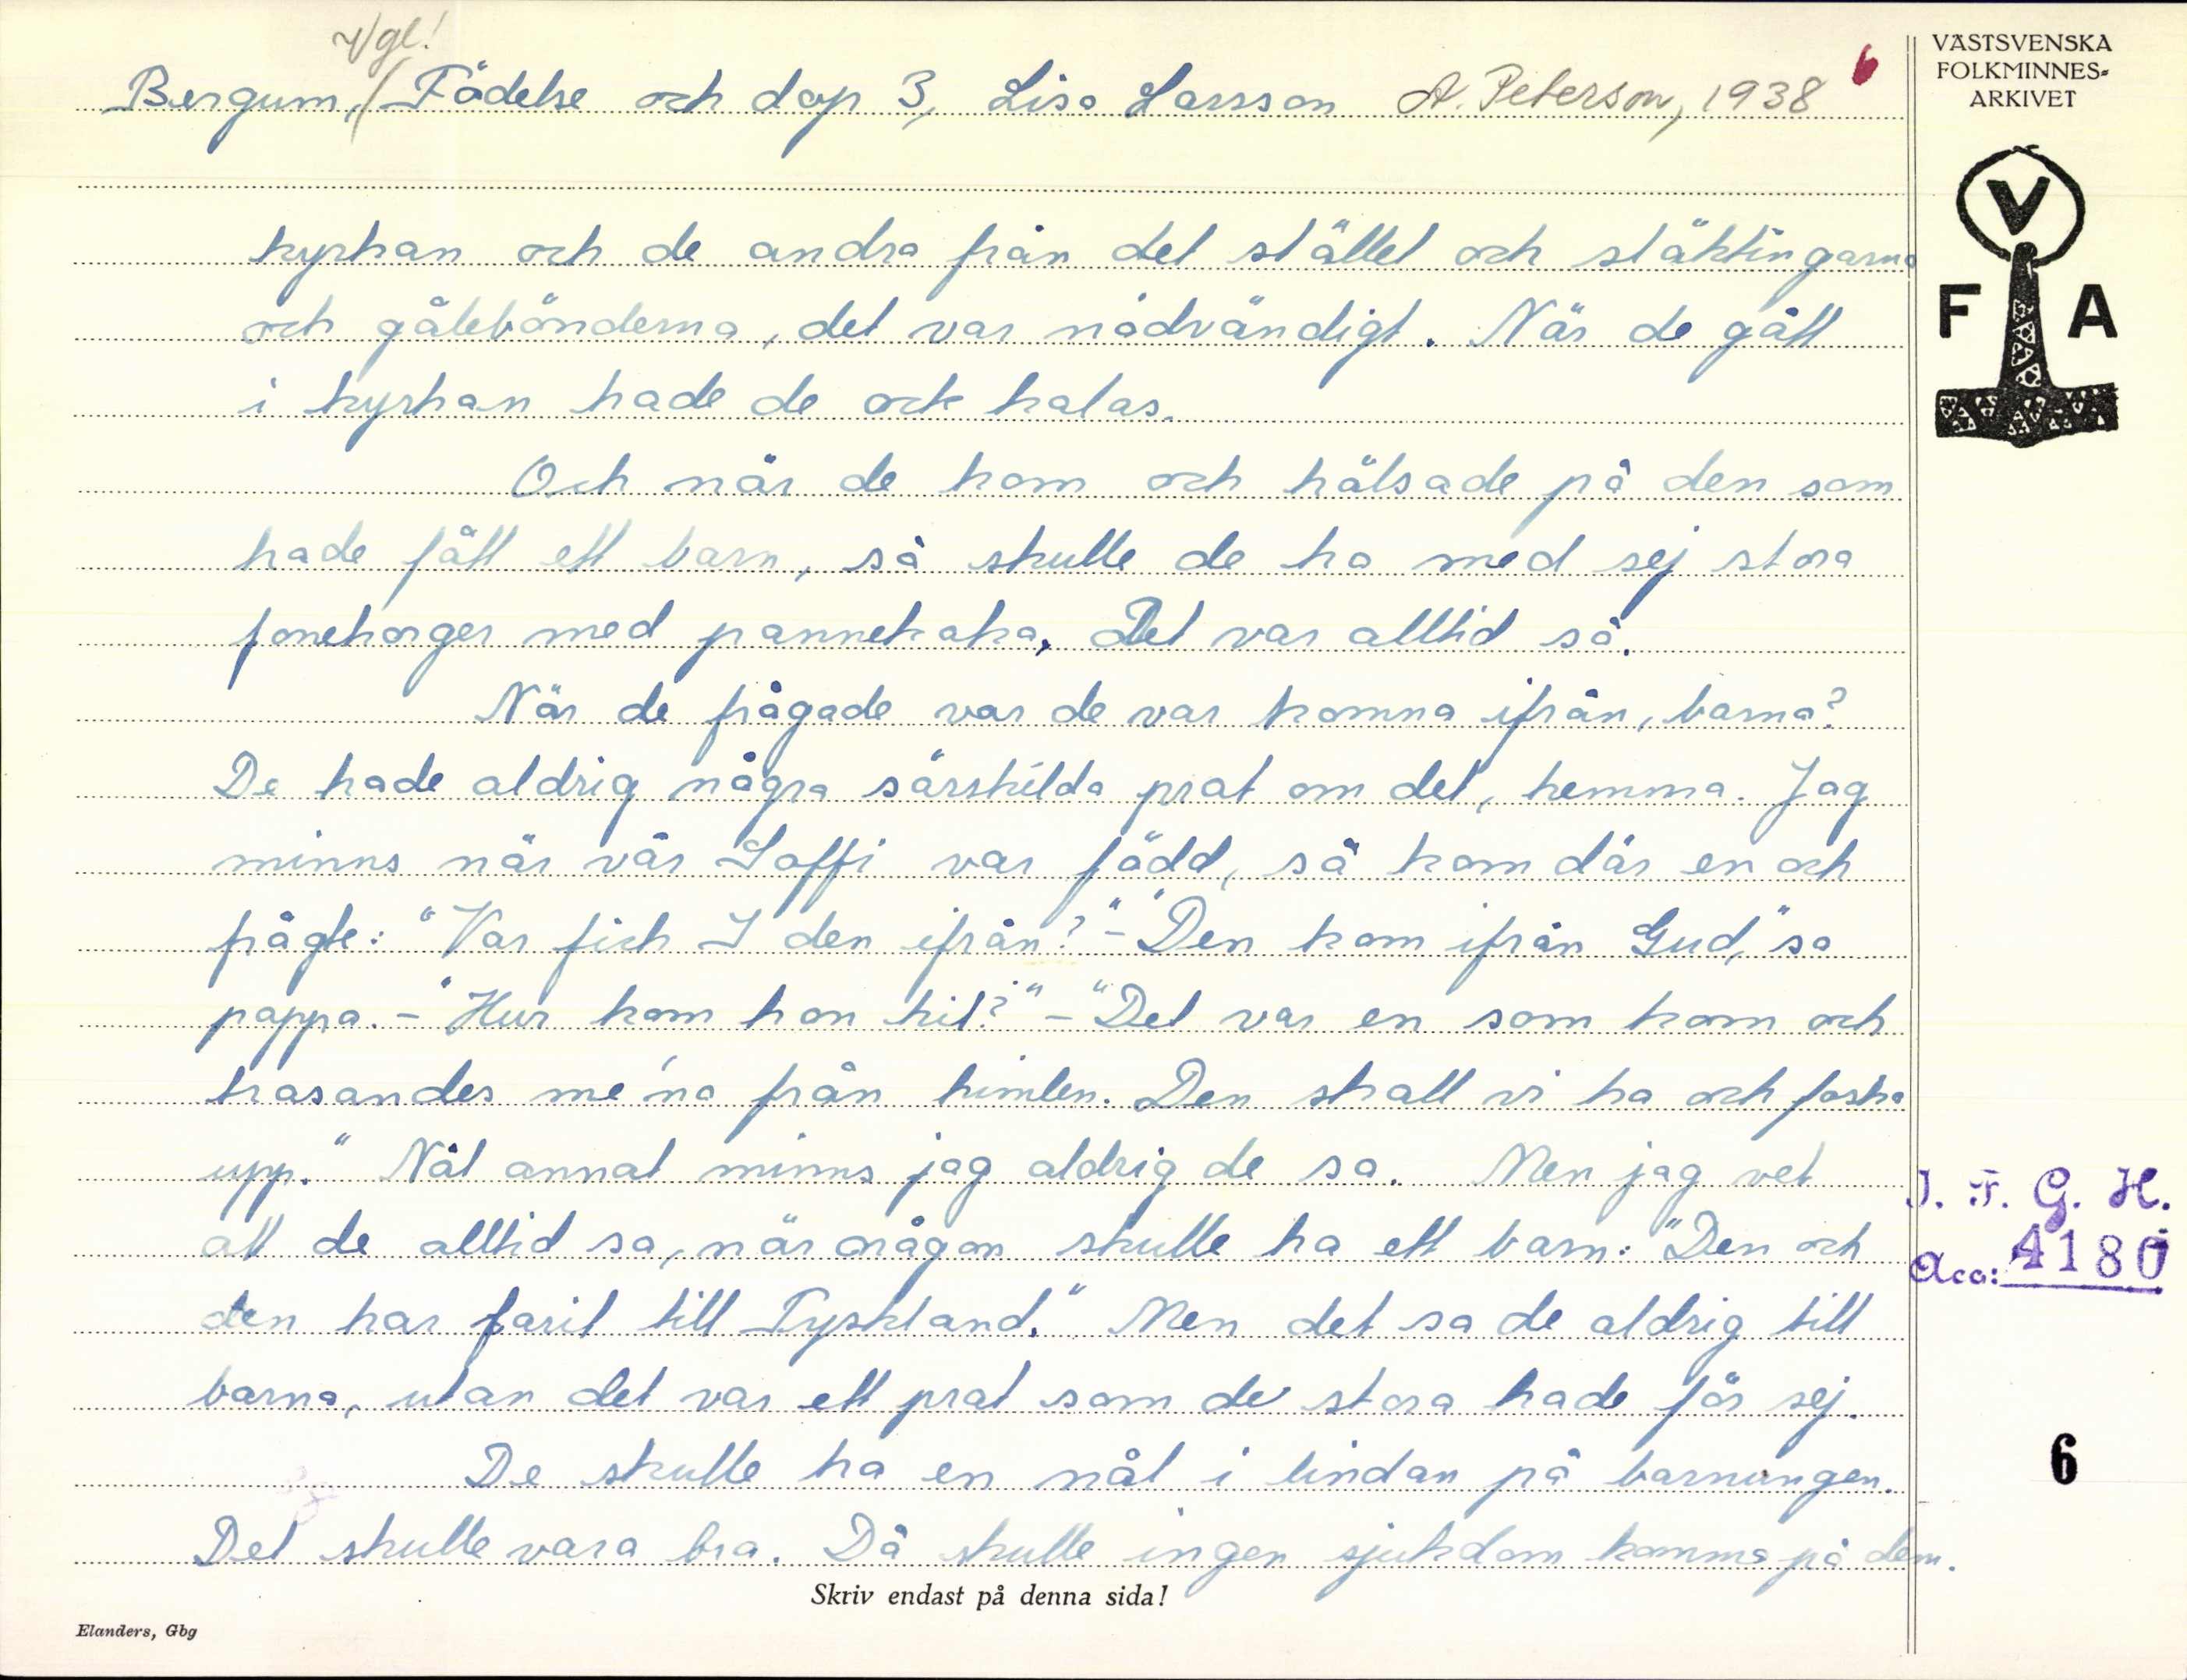 Vgl!
Bergum, / Födelse och dop 3, Lisa Larsson A. Peterson, 1938 6
VÄSTSVENSKA
FOLKMINNES-
ARKIVET
V
F A
kyrkan och de andra från det stället och släktingarna
och gålebönderna, det var nödvändigt. När de gått
i kyrkan hade de ock kalas.
Och när de kom och hälsade på den som
hade fått ett barn, så skulle de ha med sej stora
fonekorger med pannekaka. Det var alltid så.
När de frågade var de var komna ifrån, barna?
De hade aldrig några särskilda prat om det, hemma. Jag
minns när vår Soffi var född, så kom där en och
frågte: "Var fick I den ifrån?" - "Den kom ifrån Gud," sa
pappa. - "Hur kom hon hit?" - "Det var en som kom och
hasandes me'na från himlen. Den skall vi ha och foska
upp." Nåt annat minns jag aldrig de sa. Men jag vet
att de alltid sa, när någon skulle ha ett barn: "Den och
den har farit till Tyskland." Men det sa de aldrig till
barna, utan det var ett prat som de stora hade för sej.
De skulle ha en nål i lindan på barnungen.
Det skulle vara bra. Då skulle ingen sjukdom komma på dem.
I. F. G. H.
Acc: 4180
6
Skriv endast på denna sida!
Elanders, Gbg